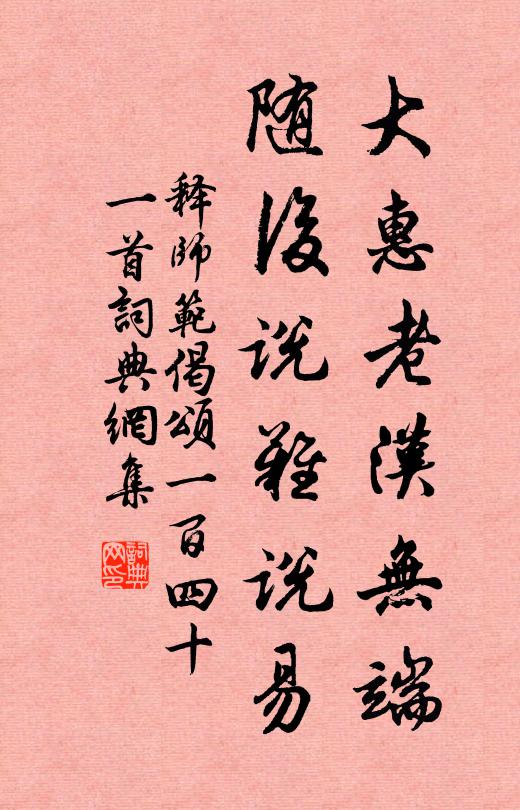 大惠老漢無端
随後说難说易
释師範偈頌一百四十
一首詞典網集
詞典網印